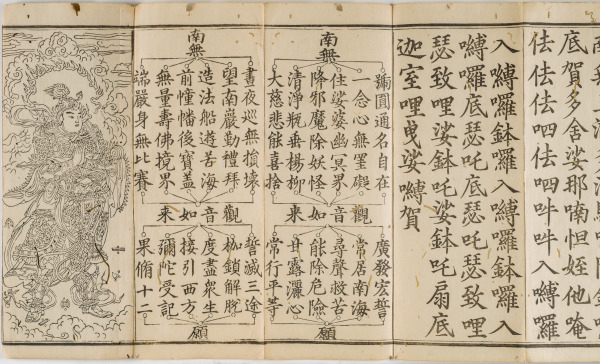 底賀多舍娑那喃怛姪他唵
佉佉呬佉佉呬吽吽入嚩囉
入嚩囉鉢囉入嚩囉鉢囉入
嚩囉底瑟吒底瑟吒瑟致哩
瑟致哩娑鉢吒娑鉢吒扇底
迦室哩曳娑嚩賀
南無
號圓通名自在
念心無罣礙
住娑婆幽冥界
降邪魔除妖怪
清淨瓶垂楊柳
大慈悲能喜捨
觀音如來
廣發宏誓
常居南海
尋聲救苦
能除危險
甘露灑心
常行平等
願
南無
晝夜巡無損壞
望南巖勤禮拜
造法船遊苦海
前幢幡後寶蓋
無量壽佛境界
端嚴身無比賽
觀音如來
誓滅三途
枷鎖解脫
度盡衆生
接引西方
彌陀受記
果脩十二
願